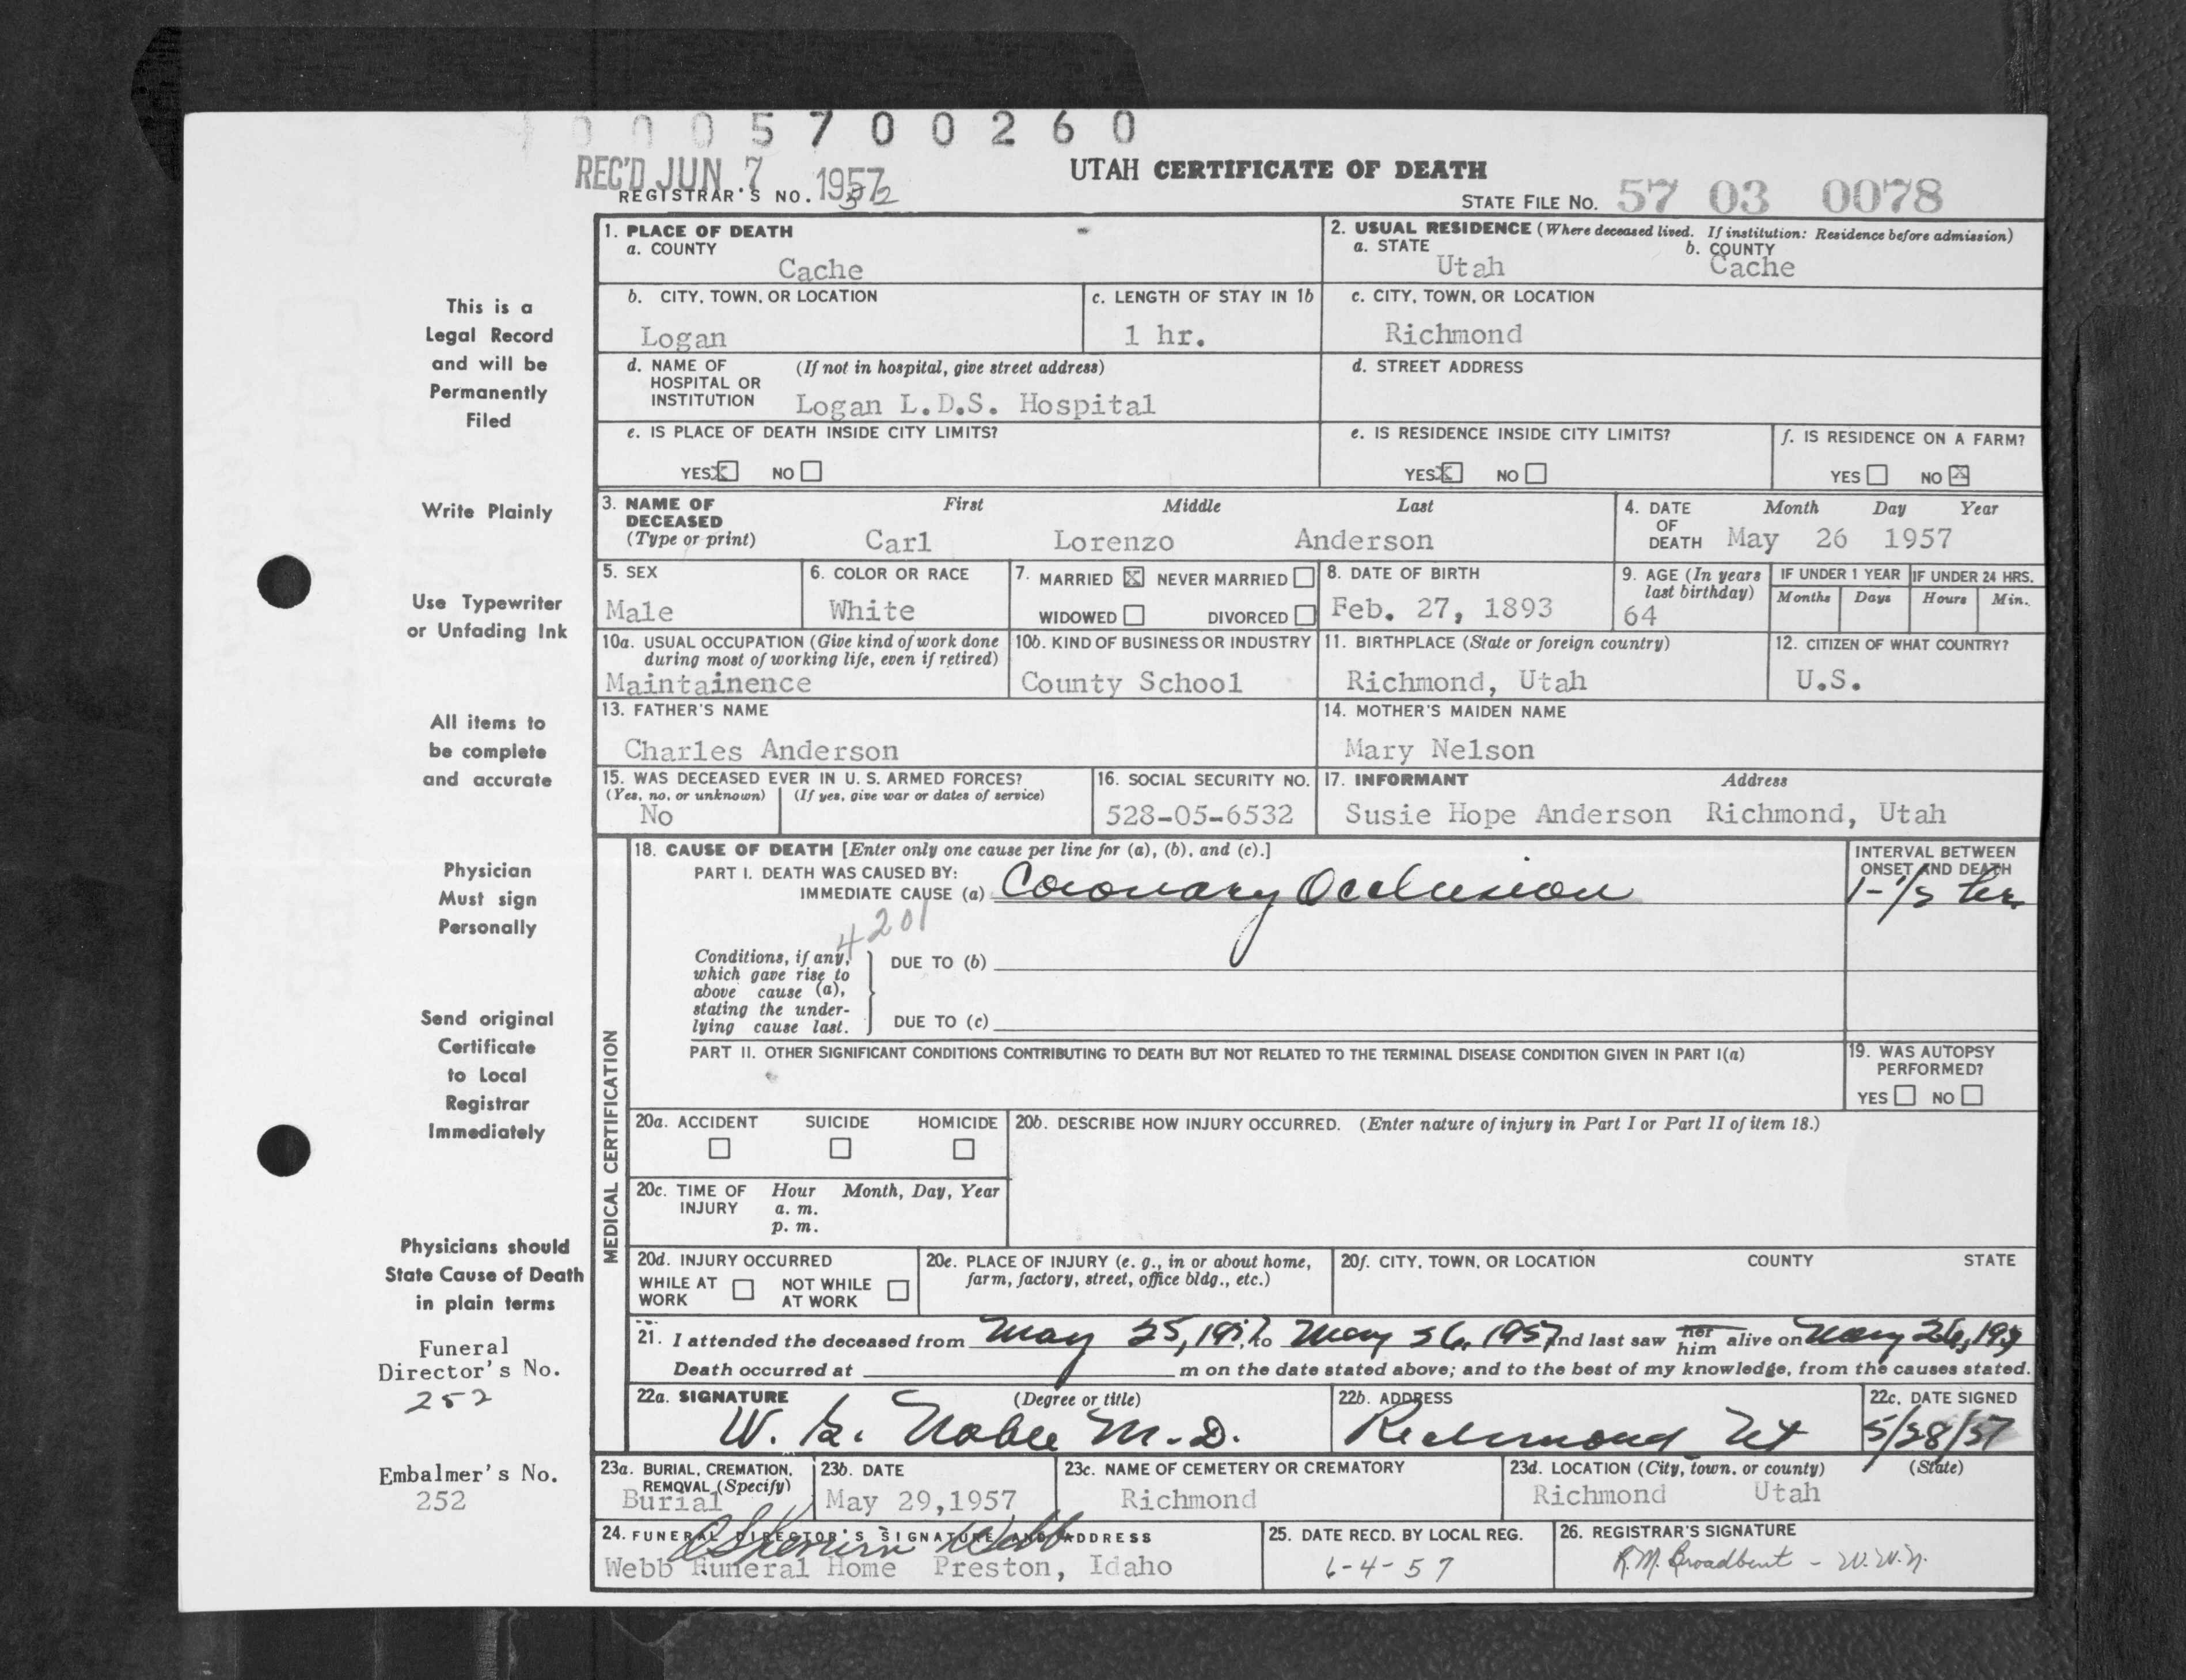 0005700260
REC'D JUN 7 1957
UTAH CERTIFICATE OF DEATH
REGISTRAR'S NO. 32
STATE FILE NO. 57 03 0078
This is a
Legal Record
and will be
Permanently
Filed
Write Plainly
Use Typewriter
or Unfading Ink
All items to
be complete
and accurate
Physician
Must sign
Personally
Send original
Certificate
to Local
Registrar
Immediately
Physicians should
State Cause of Death
in plain terms
Funeral
Director's No.
252
Embalmer's No.
252
1. PLACE OF DEATH
a. COUNTY
Cache
2. USUAL RESIDENCE (Where deceased lived. If institution: Residence before admission)
a. STATE b. COUNTY
Utah Cache
b. CITY, TOWN, OR LOCATION
Logan
c. LENGTH OF STAY IN 1b
1 hr.
c. CITY, TOWN, OR LOCATION
Richmond
d. NAME OF (If not in hospital, give street address)
HOSPITAL OR
INSTITUTION Logan L.D.S. Hospital
d. STREET ADDRESS
e. IS PLACE OF DEATH INSIDE CITY LIMITS?
YES X NO
e. IS RESIDENCE INSIDE CITY LIMITS?
YES X NO
f. IS RESIDENCE ON A FARM?
YES NO X
3. NAME OF First Middle Last
DECEASED
(Type or print) Carl Lorenzo Anderson
4. DATE Month Day Year
OF
DEATH May 26 1957
5. SEX
Male
6. COLOR OR RACE
White
7. MARRIED X NEVER MARRIED
WIDOWED DIVORCED
8. DATE OF BIRTH
Feb. 27, 1893
9. AGE (In years
last birthday)
64
IF UNDER 1 YEAR IF UNDER 24 HRS.
Months Days Hours Min.
10a. USUAL OCCUPATION (Give kind of work done
during most of working life, even if retired)
Maintainence
10b. KIND OF BUSINESS OR INDUSTRY
County School
11. BIRTHPLACE (State or foreign country)
Richmond, Utah
12. CITIZEN OF WHAT COUNTRY?
U.S.
13. FATHER'S NAME
Charles Anderson
14. MOTHER'S MAIDEN NAME
Mary Nelson
15. WAS DECEASED EVER IN U. S. ARMED FORCES?
(Yes, no, or unknown) (If yes, give war or dates of service)
No
16. SOCIAL SECURITY NO.
528-05-6532
17. INFORMANT Address
Susie Hope Anderson Richmond, Utah
MEDICAL CERTIFICATION
18. CAUSE OF DEATH [Enter only one cause per line for (a), (b), and (c).]
PART I. DEATH WAS CAUSED BY:
IMMEDIATE CAUSE (a) Coronary Occlusion
INTERVAL BETWEEN
ONSET AND DEATH
4201
Conditions, if any,
which gave rise to
above cause (a),
stating the under-
lying cause last.
DUE TO (b)
DUE TO (c)
PART II. OTHER SIGNIFICANT CONDITIONS CONTRIBUTING TO DEATH BUT NOT RELATED TO THE TERMINAL DISEASE CONDITION GIVEN IN PART I(a)
19. WAS AUTOPSY
PERFORMED?
YES NO
20a. ACCIDENT SUICIDE HOMICIDE
20b. DESCRIBE HOW INJURY OCCURRED. (Enter nature of injury in Part I or Part II of item 18.)
20c. TIME OF Hour Month, Day, Year
INJURY a. m.
p. m.
20d. INJURY OCCURRED
WHILE AT NOT WHILE
WORK AT WORK
20e. PLACE OF INJURY (e. g., in or about home,
farm, factory, street, office bldg., etc.)
20f. CITY, TOWN, OR LOCATION COUNTY STATE
21. I attended the deceased from May 25, 1957, to May 26, 1957 and last saw her him alive on May 26, 1957
Death occurred at m on the date stated above; and to the best of my knowledge, from the causes stated.
22a. SIGNATURE (Degree or title)
W. Noble M.D.
22b. ADDRESS
Richmond Ut
22c. DATE SIGNED
5/28/57
23a. BURIAL, CREMATION,
REMOVAL (Specify)
Burial
23b. DATE
May 29,1957
23c. NAME OF CEMETERY OR CREMATORY
Richmond
23d. LOCATION (City, town, or county) (State)
Richmond Utah
24. FUNERAL DIRECTOR'S SIGNATURE AND ADDRESS
Webb
Webb Funeral Home Preston, Idaho
25. DATE RECD. BY LOCAL REG.
6-4-57
26. REGISTRAR'S SIGNATURE
R.M. Broadbent - W.W.N.